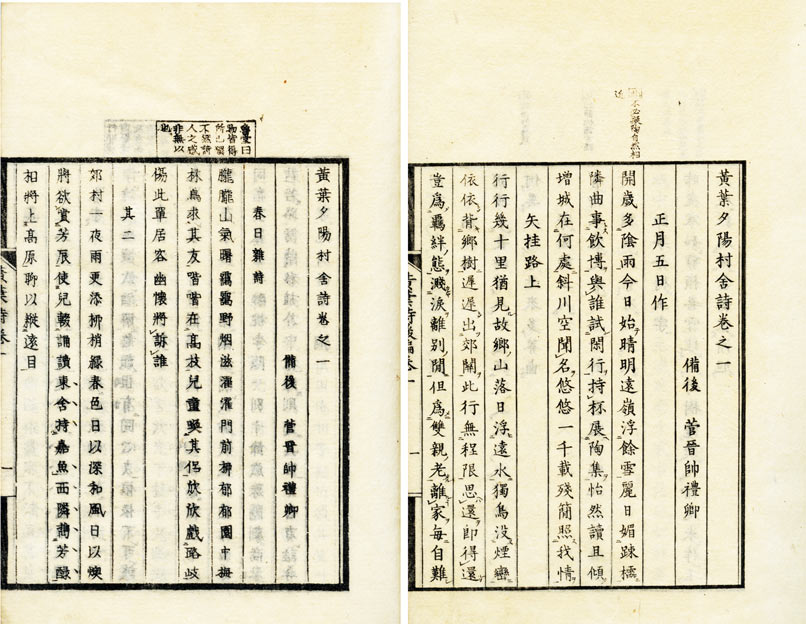 不必擬陶自然相
近
黃葉夕陽村舍詩卷之一
備後 菅晉帥禮卿
正月五日作
開歲多陰雨今日始晴明遠嶺浮餘雪麗日媚踈櫺
隣曲事飲博與誰試閒行持杯展陶集怡然讀且傾
增城在何處斜川空聞名悠悠一千載殘簡照我情
矢挂路上
行行幾十里猶見故鄉山落日浮遠水獨鳥没煙巒
依依背鄉樹遲遲出郊關此行無程限思還即得還
豈爲羈絆態濺淚離別間但爲雙親老離家每自難
黃葉詩後編卷一
一
魯堂曰
黃葉夕陽村舍詩卷之一
備後 菅晉帥禮卿
春日雜詩
朧朧山氣曙靄靄野烟滋濯濯門前柳郁郁園中梅
林鳥求其友喈喈在高枝兒童喚其侶欣欣戲路歧
傷此單居客幽懷將訴誰
其二
郊村一夜雨更添柳梢綠春色日以深和風日以燠
將欲賞芳辰使兒輟誦讀東舍持嘉魚西隣攜芳醁
相將上高原聊以縱遠目
黃葉詩卷一
一